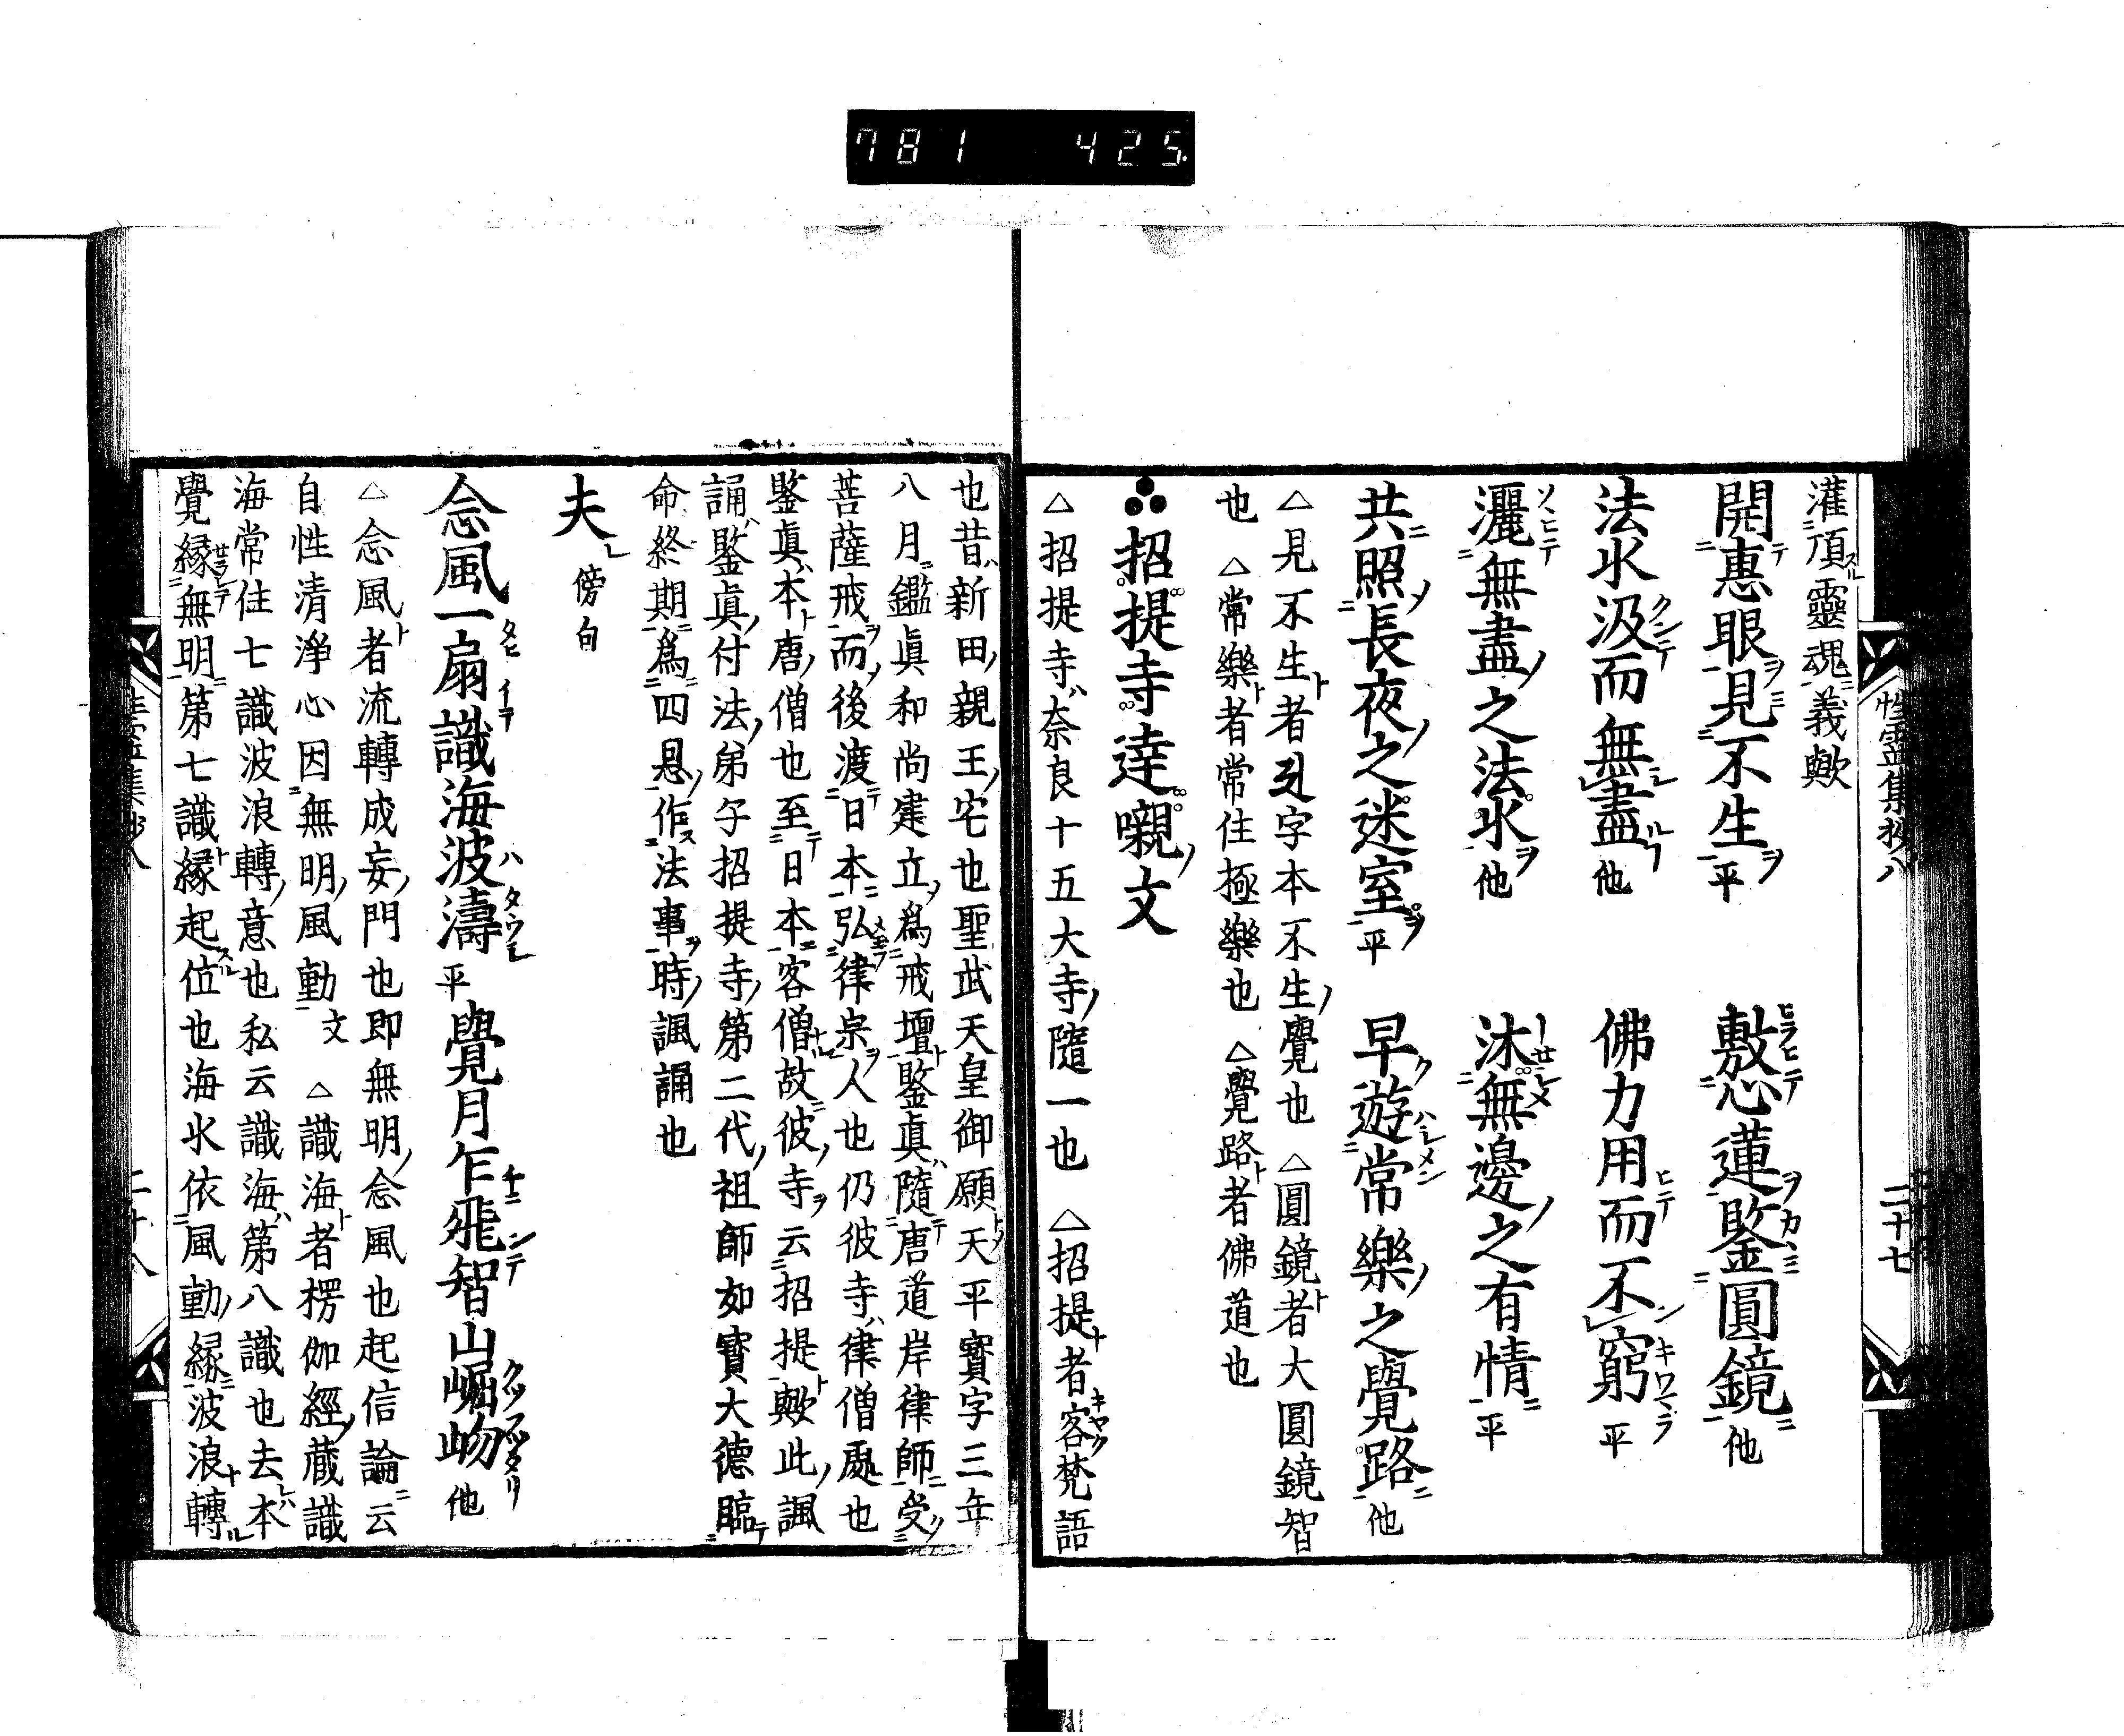 781 425
灌頂スル靈魂義歟
開惠眼見不生平 敷心蓮鑒圓鏡他
法水汲而無盡他 佛力用而不窮平
灑無盡之法水他 沐無邊之有情平
共照長夜之迷室平 早遊常樂之覺路他
△見不生者 字本不生覺也 △圓鏡者大圓鏡智
也 △常樂者常住極樂也 △覺路者佛道也
招提寺達嚫文
△招提寺奈良十五大寺隨一也 △招提者客梵語
也昔新田親王宅也聖武天皇御願天平寳字三年
八月鑑眞和尚建立爲戒壇鑒眞隨唐道岸律師受
菩薩戒而後渡日本弘律宗人也仍彼寺律僧處也
鑒眞本唐僧也至日本客僧故彼寺云招提歟此諷
誦鑒眞付法弟子招提寺第二代祖師如寳大德臨
命終期爲四恩作法事時諷誦也
夫 傍句
念風一扇識海波濤平 覺月乍飛智山崛岉他
△念風者流轉成妄門也即無明念風也起信論云
自性清淨心因無明風動文 △識海者楞伽經藏識
海常住七識波浪轉意也私云識海第八識也去本
覺縁無明第七識縁起位也海水依風動縁波浪轉
性霊集抄八 二十七